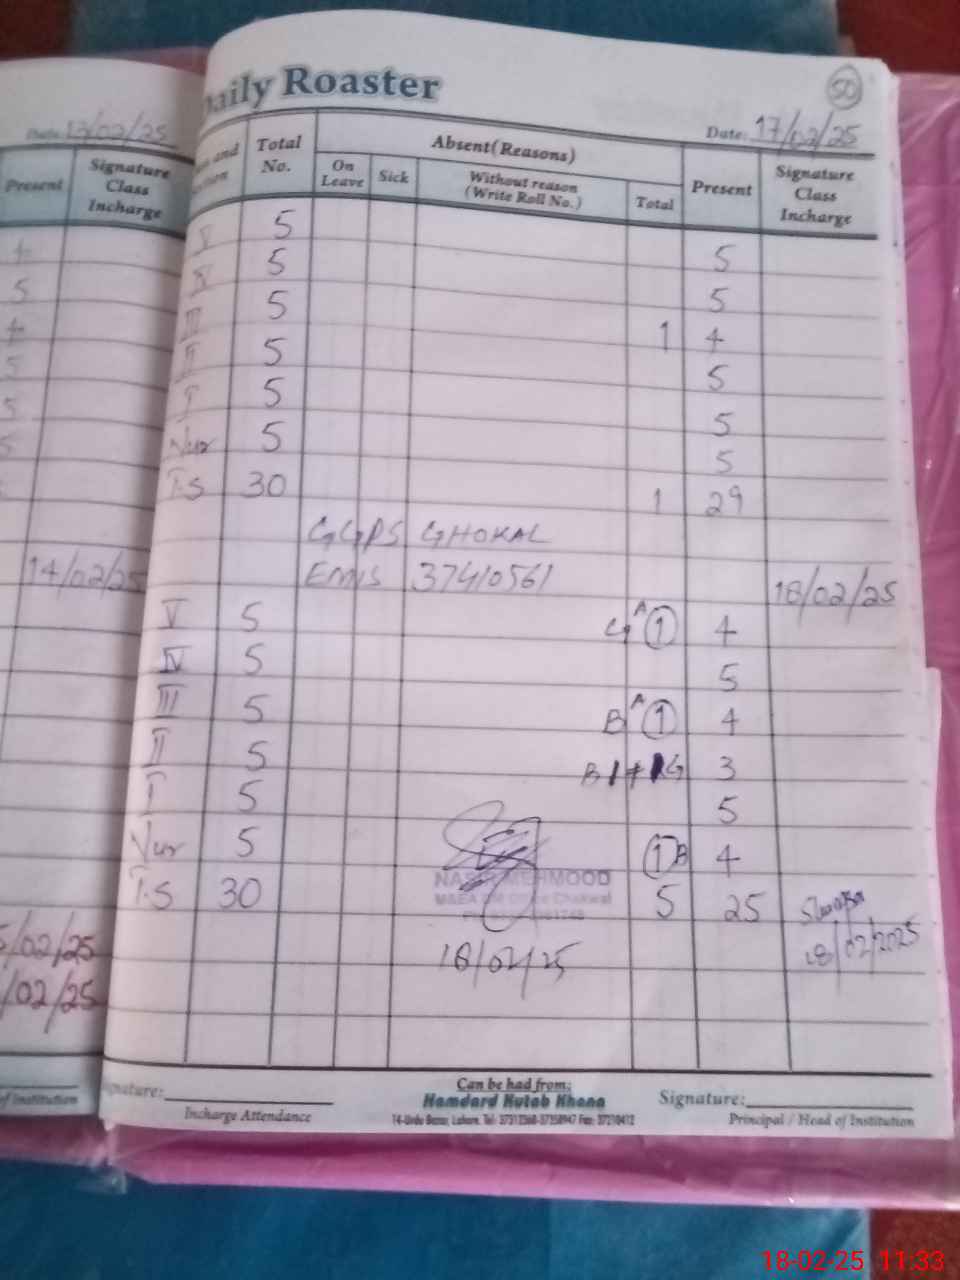 Daily Roaster
50
Date: 13/02/25
Date: 17/02/25
Present Signature Class Incharge
Total No. Absent(Reasons) Present Signature Class Incharge
On Leave Sick Without reason (Write Roll No.) Total
V 5 5
IV 5 5
III 5 1 4
II 5 5
I 5 5
Nur 5 5
T.S 30 1 29
GGPS GHOKAL
EMIS 37410561
14/02/25
18/02/25
V 5 G A 1 4
IV 5 5
III 5 B A 1 4
II 5 B 1 + 1 G 3
I 5 5
Nur 5 1 B 4
T.S 30 5 25
NASIR MEHMOOD
M&EA DM Office Chakwal
18/02/25
18/02/2025
/02/25
/02/25
of Institution
Signature:
Incharge Attendance
Can be had from:
Hamdard Kutab Khana
14-Urdu Bazar, Lahore. Tel: 37312368-37358947 Fax: 37210412
Signature:
Principal / Head of Institution
18-02-25 11:33